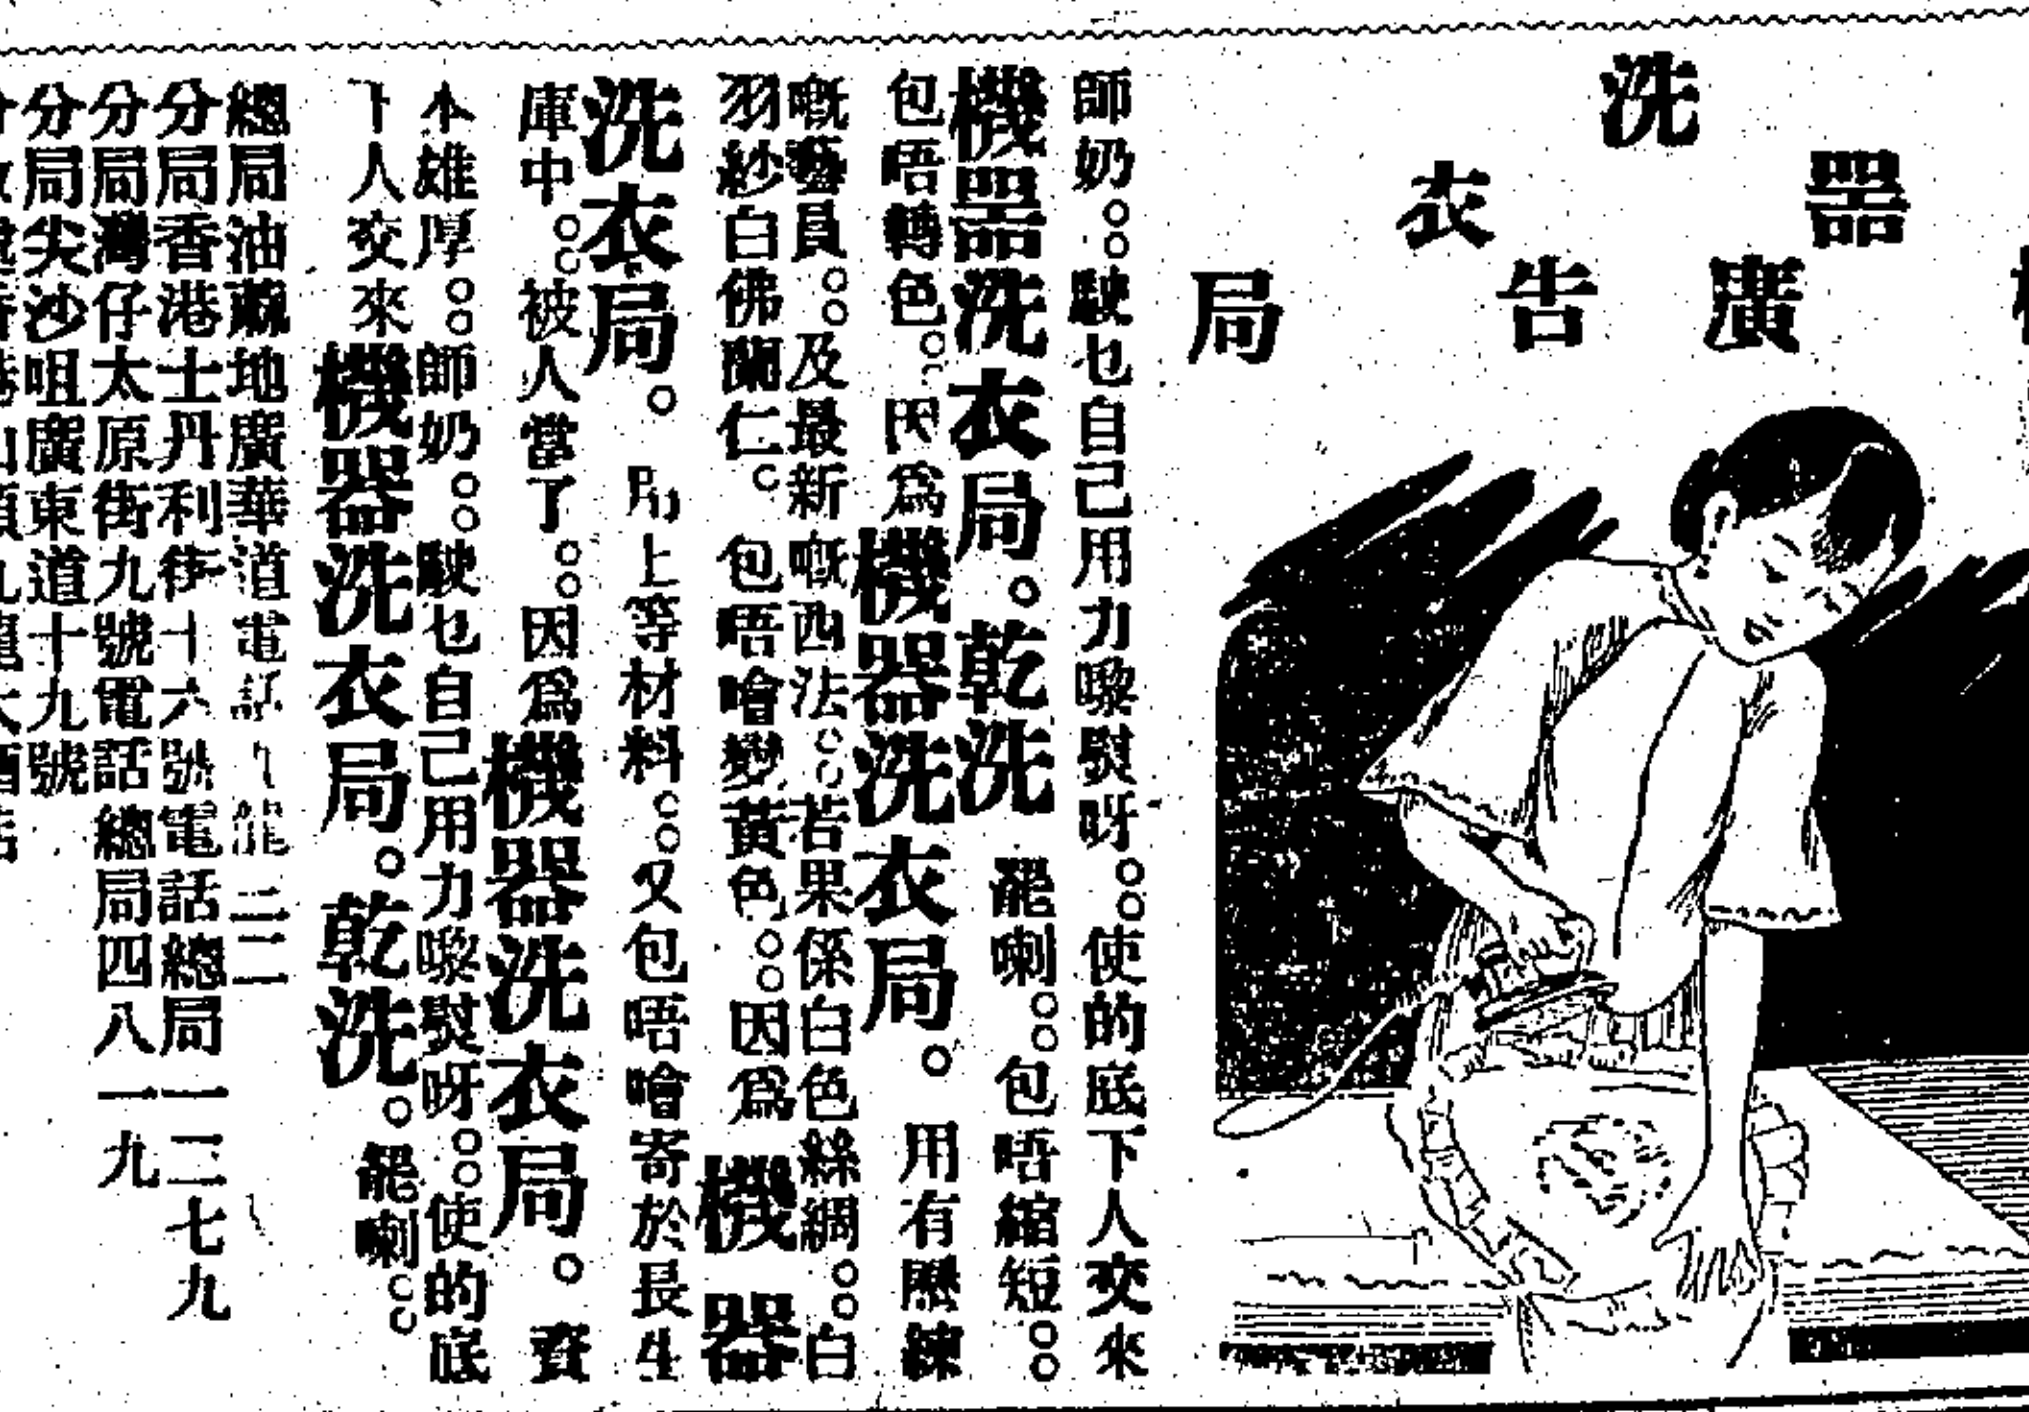 機器洗衣局
廣告
師奶。。駛乜自己用力嚟熨呀。。使的底下人交來
機器洗衣局。乾洗 罷喇。。包唔縮短。。
包唔轉色。。因爲機器洗衣局。用有熟練
嘅藝員。。及最新嘅西法。。若果係白色絲綢。。白
羽紗白佛蘭仁。包唔噲變黃色。。因爲 機器
洗衣局。 用上等材料。。又包唔噲寄於長生
庫中。。被人當了。。因爲機器洗衣局。資
本雄厚。。師奶。。駛乜自己用力嚟熨呀。。使的底
下人交來機器洗衣局。乾洗。罷喇。。
總局油蔴地廣華道電話九龍三二
分局香港士丹利街十六號電話總局一二七九
分局灣仔太原街九號電話總局四八一九
分局尖沙咀廣東道十九號